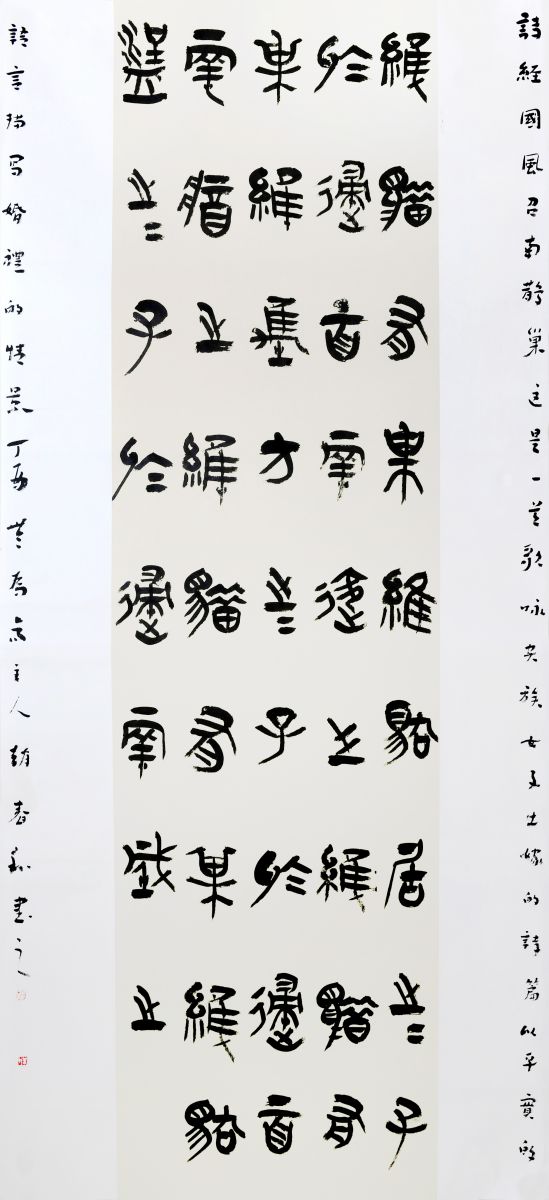 詩經國風召南鵲巢這是一首歌咏貴族女子出嫁的詩篇以平實的
維鵲有巢維鳩居之=子
於歸百兩御之維鵲有
巢維鳩方之=子於歸百
兩將之維鵲有巢維鳩
盈之=子於歸百兩成之
詩言描寫婚禮的情景丁酉主人趙春和書之